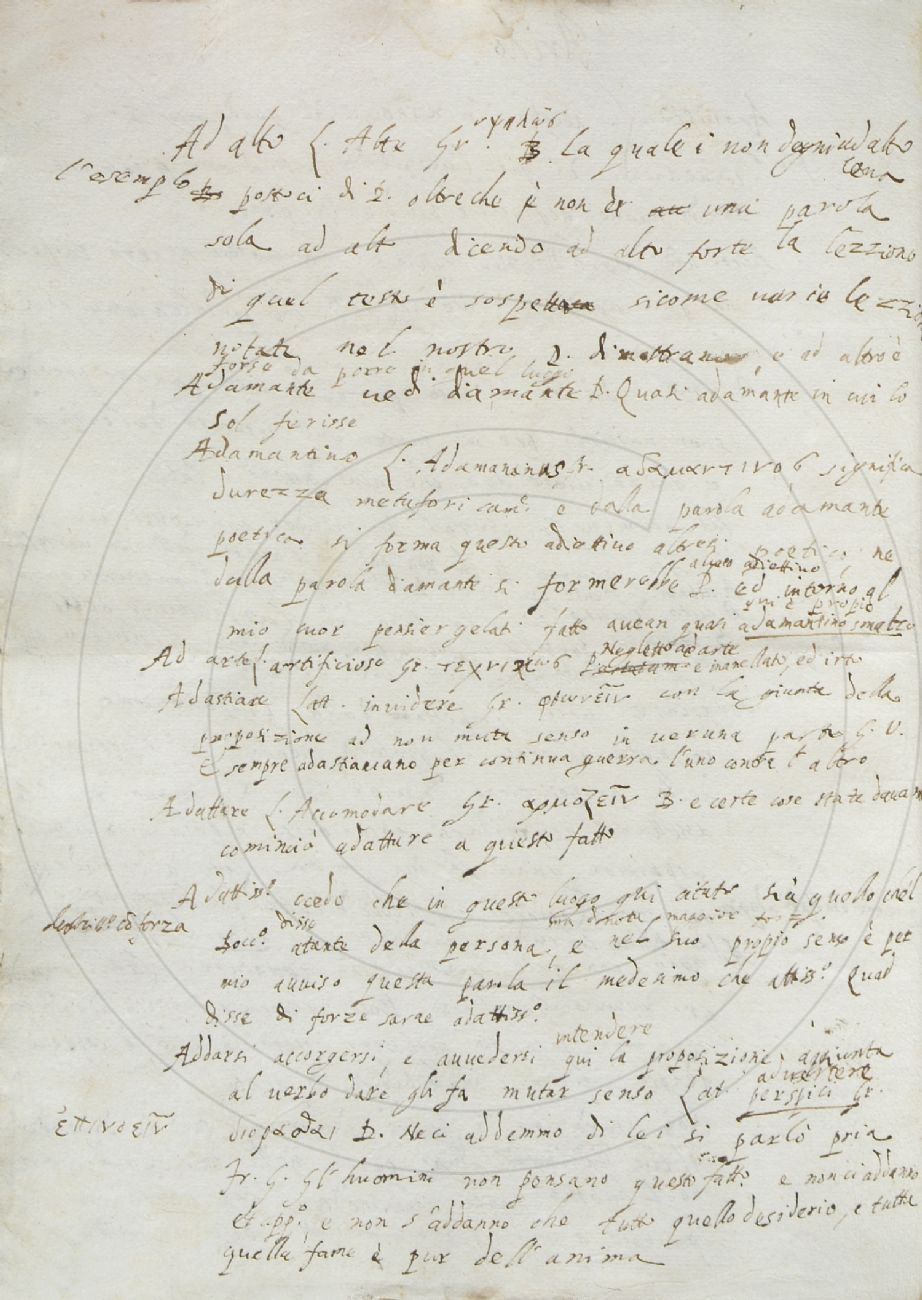 Ad alto L. Alte Gr. ὑψηλῶς B. la quale i non degnied alto
cena
l'esempio postoci di P. oltreche è non è una parola
sola ad alt dicendo ad alto forte la lezzione
di quel testo è sospetta sicome varie lezzio
notate nel nostro P. dimostrano, e ad altro è
forse da porre in quel luogo
Adamante vedi diamante P. Quasi adamante in cui lo
sol ferisse
Adamantino L. Adamantinus Gr. αδαμαντινος significa
durezza metaforicam.e e dalla parola adamante
poetica si forma questo adiettivo altresi poetico, ne
dalla parola diamante si formerebbe P. ed intorno al
altro adiettivo
qui è propio
mio cuor pensier gelati fatto avean quasi adamantino smalto
Neglettoadarte
Ad arte L. artificiose Gr. τεχνικως P. e manellato, ed irto
Adastiare Lat. invidere Gr. φθονεῖν con la giunta della
proposizione ad non muta senso in veruna parte G. V.
E sempre adastiavano per continua guerra l'uno contr l'altro
Adattare L. Accomodare Gr. αρμοζεῖν B. e certe cose state davan
cominciò adattare a questo fatto
Adattiss.o credo che in questo luogo qui citato sia quello che'l
con forza
disse
ma denota maggior forza
Bocc.o atante dela persona, e nel suo propio senso è per
mio avviso questa parola il medesimo che attiss.o Quad
disse di forze sarae adattiss.o
intendere
Addarsi accorgersi, e avvedersi qui la proposizione aggiunta
al verbo dare gli fa mutar senso Lat. perspici Gr.
advertere
ἐπινοεῖν
P. Ne ci addemmo di lei si parlò pria
Fr. G. Gl'huomini non pensano questo fatto e non ci addanno
et app.o e non s'addanno che tutto quello desiderio, e tutta
quella fame è pur dell'anima